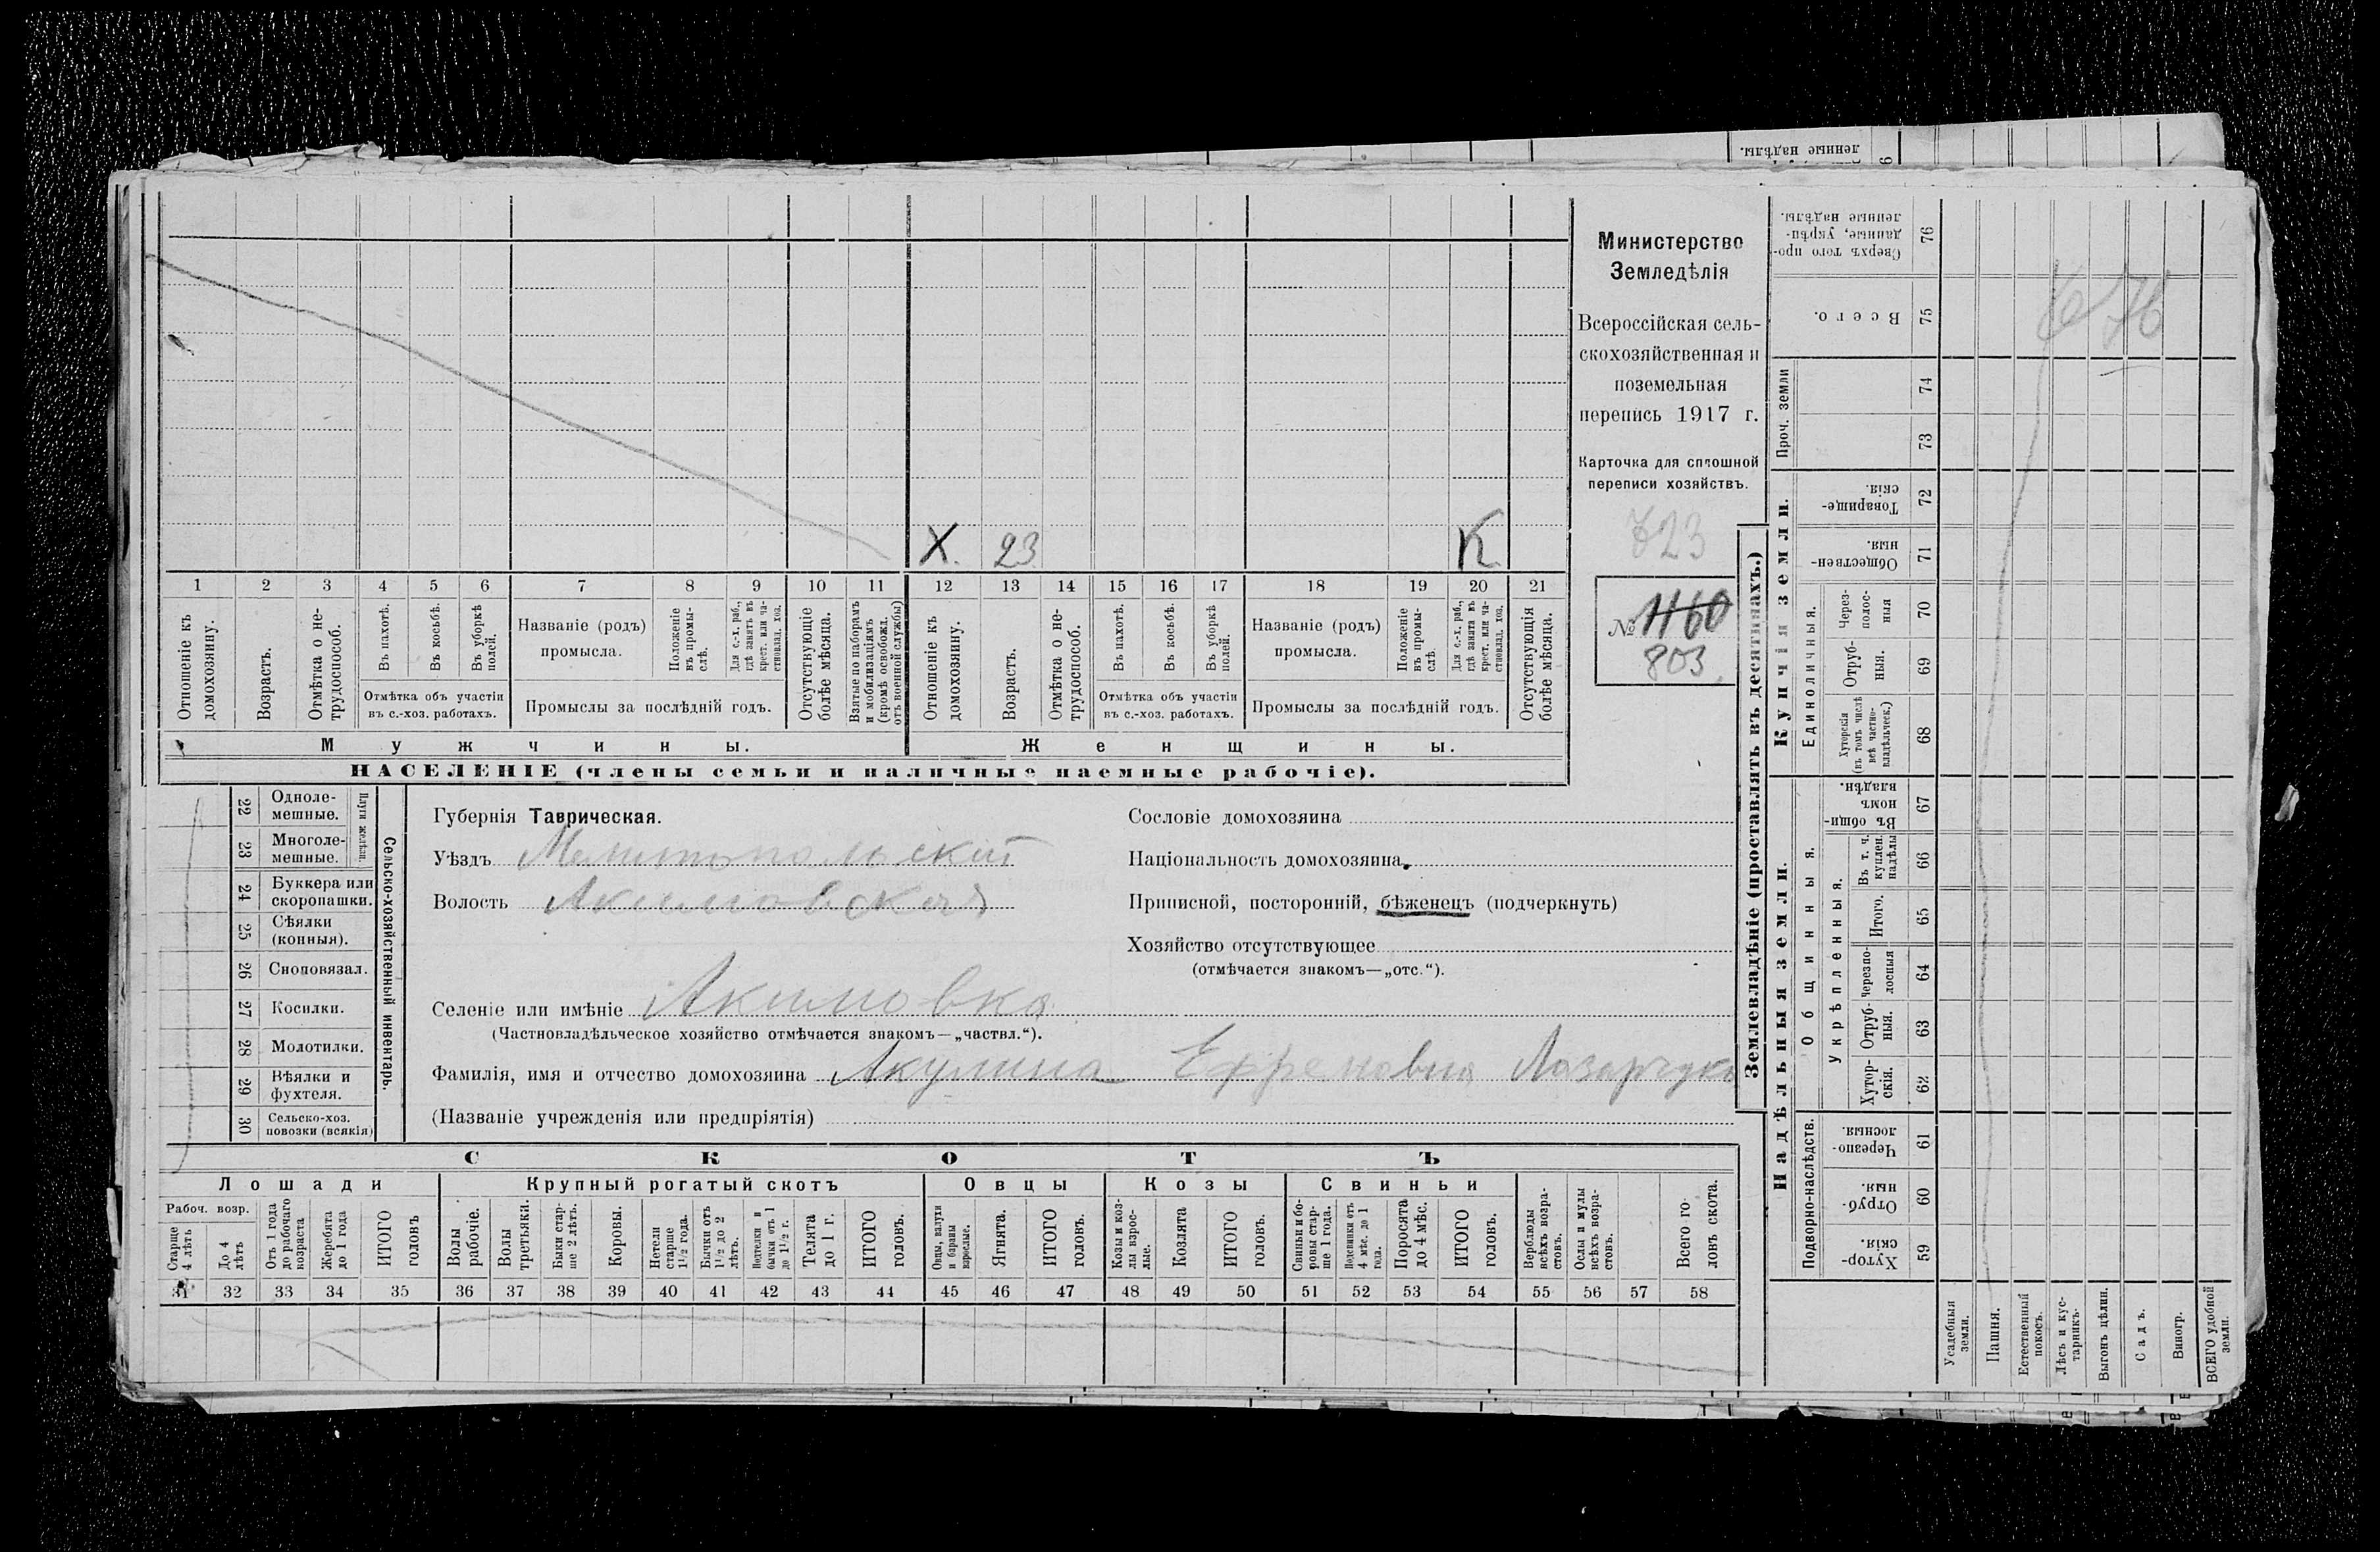 ленные надѣлы.
6
Министерство
Земледѣлія
Всероссійская сель-
скохозяйственная и
поземельная
перепись 1917 г.
Карточка для сплошной
переписи хозяйствъ.
723
№ 1160
803
X. 23 К
1 2 3 4 5 6 7 8 9 10 11 12 13 14 15 16 17 18 19 20 21
Отношеніе къ домохозяину.
Возрастъ.
Отмѣтка о не-трудоспособ.
Въ пахотѣ.
Въ косьбѣ.
Въ уборкѣ полей.
Отмѣтка объ участіи
въ с.-хоз. работахъ.
Названіе (родъ)
промысла.
Положеніе въ промы-слѣ.
Для с.-х. раб., гдѣ занятъ въ крест. или ча-стновлад. хоз.
Промыслы за послѣдній годъ.
Отсутствующіе болѣе мѣсяца.
Взятые по наборамъ и мобилизаціямъ (кромѣ освобожд. отъ военной службы)
Отношеніе къ домохозяину.
Возрастъ.
Отмѣтка о не-трудоспособ.
Въ пахотѣ.
Въ косьбѣ.
Въ уборкѣ полей.
Отмѣтка объ участіи
въ с.-хоз. работахъ.
Названіе (родъ)
промысла.
Положеніе въ промы-слѣ.
Для с.-х. раб., гдѣ занята въ крест. или ча-стновлад. хоз.
Промыслы за послѣдній годъ.
Отсутствующія болѣе мѣсяца.
Мужчины.
Женщины.
НАСЕЛЕНІЕ (члены семьи и наличные наемные рабочіе).
Сельско-хозяйственный инвентарь.
Плуги желѣзн.
22 Одноле-мешные.
23 Многоле-мешные.
24 Буккера или скоропашки.
25 Сѣялки (конныя).
26 Сноповязал.
27 Косилки.
28 Молотилки.
29 Вѣялки и фухтеля.
30 Сельско-хоз. повозки (всякія)
Губернія Таврическая.
Уѣздъ Мелитопольскій
Волость Акимовская
Сословіе домохозяина
Національность домохозяина
Приписной, посторонній, бѣженецъ (подчеркнуть)
Хозяйство отсутствующее
(отмѣчается знакомъ—„отс.“).
Селеніе или имѣніе Акимовка
(Частновладѣльческое хозяйство отмѣчается знакомъ—„частвл.“).
Фамилія, имя и отчество домохозяина Акулина Ефремовна Лазарчукъ
(Названіе учрежденія или предпріятія)
СКОТЪ
Лошади
Крупный рогатый скотъ
Овцы
Козы
Свиньи
Рабоч. возр.
Старше 4 лѣтъ
До 4 лѣтъ
Отъ 1 года до рабочаго возраста
Жеребята до 1 года
ИТОГО головъ
Волы рабочіе.
Волы третьяки.
Быки стар-ше 2 лѣтъ.
Коровы.
Нетели старше 1½ года.
Бычки отъ 1½ до 2 лѣтъ.
Подтелки и бычки отъ 1 до 1½ г.
Телята до 1 г.
ИТОГО головъ.
Овцы, валухи и бараны взрослые.
Ягнята.
ИТОГО головъ.
Козы и коз-лы взрос-лые.
Козлята
ИТОГО головъ.
Свиньи и бо-ровы стар-ше 1 года.
Подсвинки отъ 4 мѣс. до 1 года.
Поросята до 4 мѣс.
ИТОГО головъ.
Верблюды всѣхъ возра-стовъ.
Ослы и мулы всѣхъ возра-стовъ.
Всего го-ловъ скота.
31 32 33 34 35 36 37 38 39 40 41 42 43 44 45 46 47 48 49 50 51 52 53 54 55 56 57 58
Землевладѣніе (проставлять въ десятинахъ.)
Сверхъ того про-данные, укрѣп-ленные надѣлы. 76
Всего. 75
Проч. земли
74
73
Купчія земли.
Товарище-скія. 72
Обществен-ныя. 71
Единоличныя.
Через-полос-ныя 70
Отруб-ныя. 69
Хуторскія (въ томъ числѣ всѣ частно-владѣльческ.) 68
Надѣльныя земли.
Общинныя.
Въ общи-номъ владѣн. 67
Укрѣпленныя.
Въ т. ч. куплен. надѣлы 66
Итого. 65
Черезпо-лосныя 64
Отруб-ныя. 63
Хутор-скія. 62
Подворно-наслѣдств.
Черезпо-лосныя. 61
Отруб-ныя. 60
Хутор-скія. 59
Усадебныя земли.
Пашня.
Естественный покосъ.
Лѣсъ и кус-тарникъ.
Выгонъ цѣлин.
Садъ.
Виногр.
ВСЕГО удобной земли.